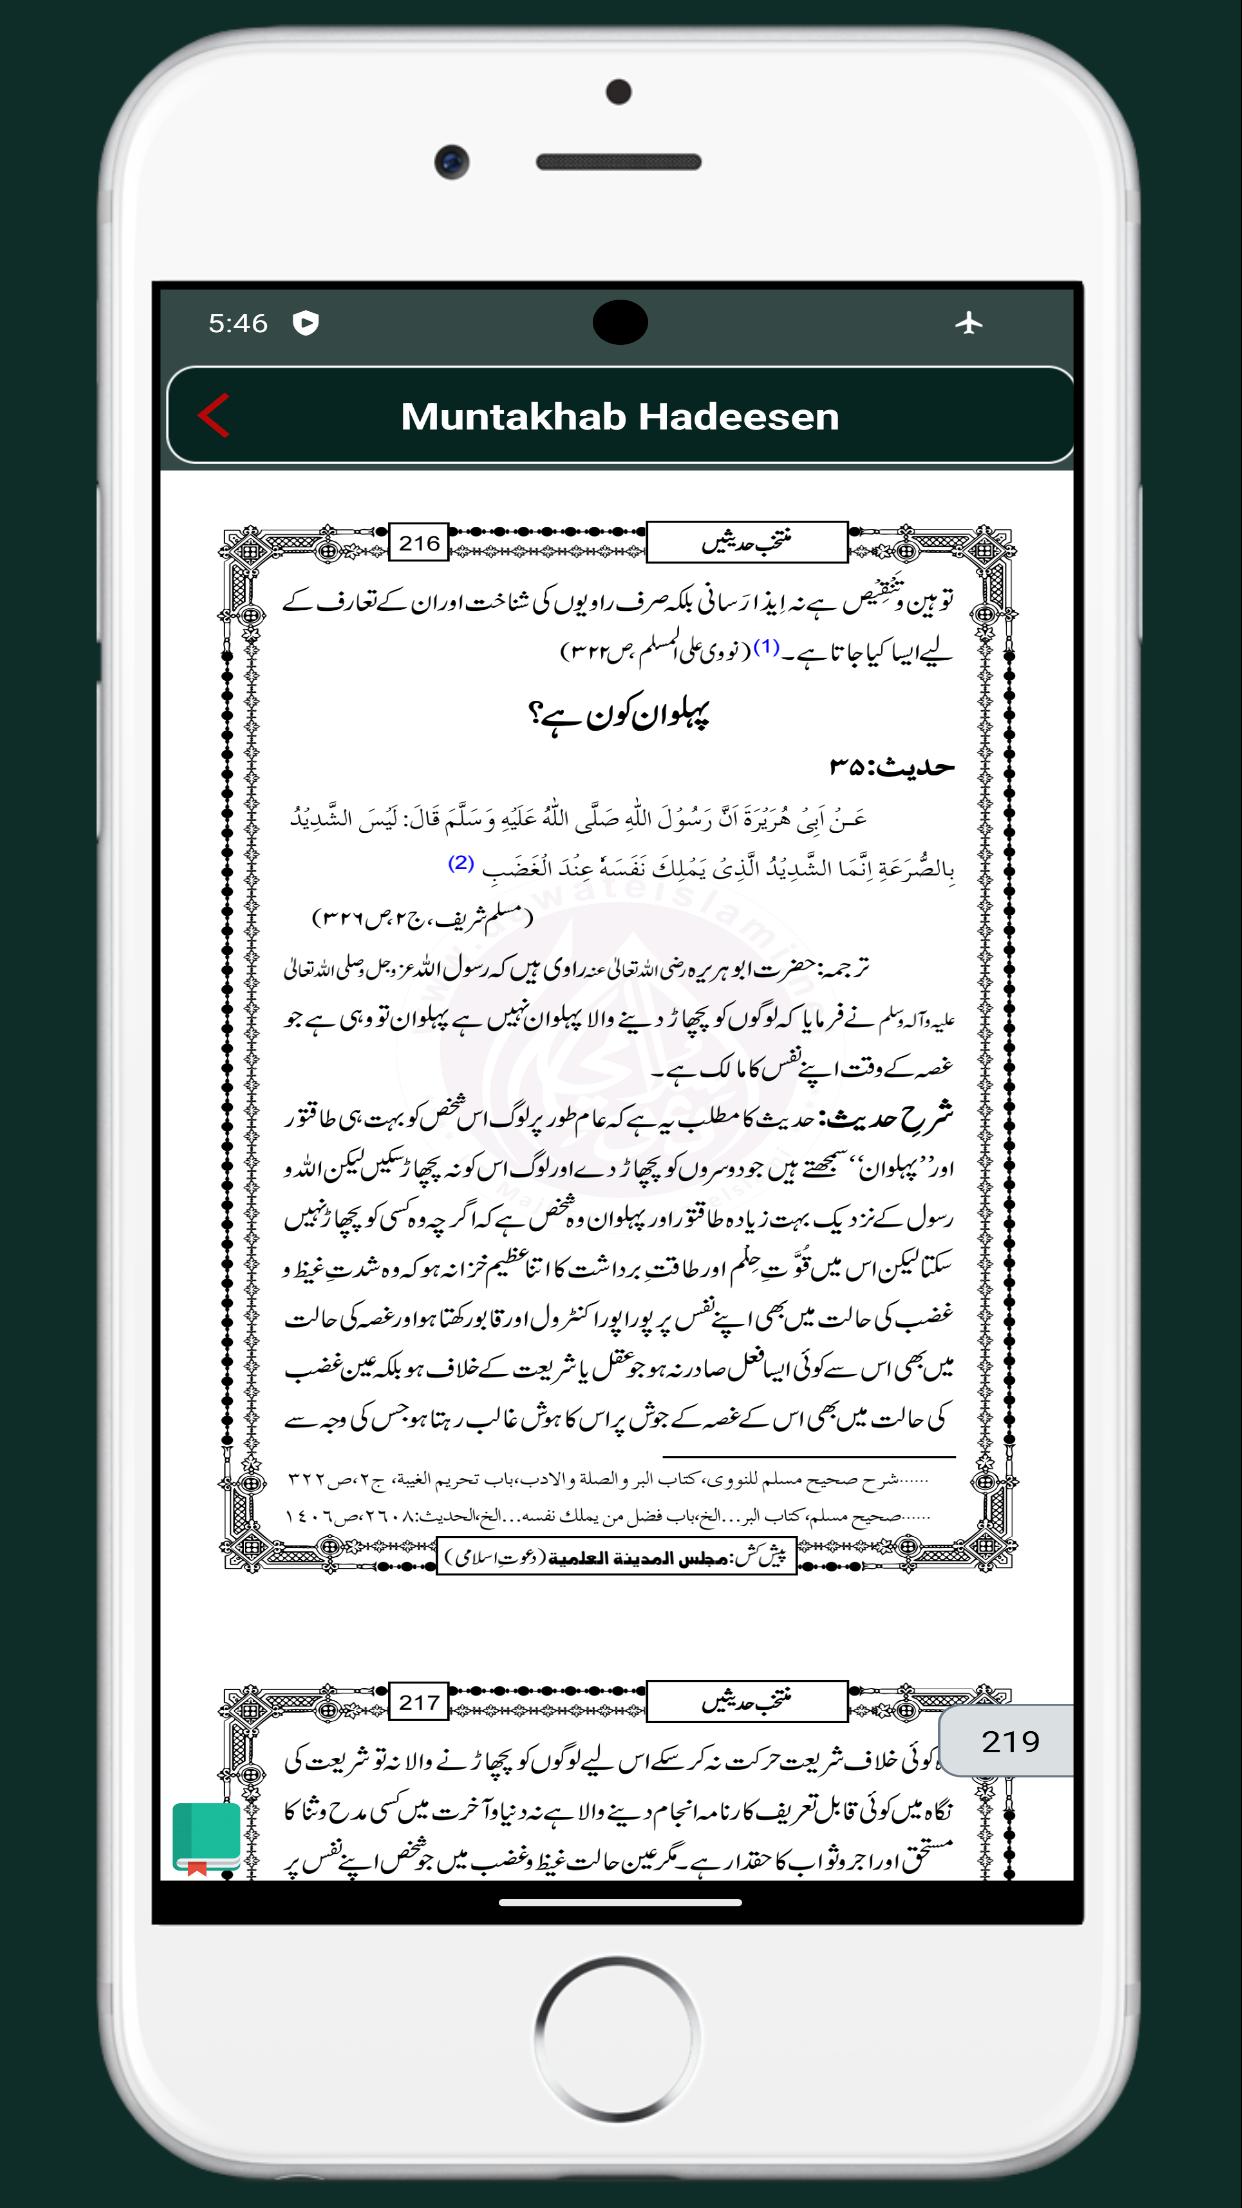 5:46
Muntakhab Hadeesen
منتخب حدیثیں
216
توہین و تَنْقِیْص ہے نہ اِیذا رَسانی بلکہ صرف راویوں کی شناخت اور ان کے تعارف کے
لیے ایسا کیا جاتا ہے۔(1) (نووی علی المسلم ص۳۲۲)
پہلوان کون ہے؟
حدیث:۳۵
عَنْ اَبِیْ هُرَیْرَةَ اَنَّ رَسُوْلَ اللّٰهِ صَلَّی اللّٰهُ عَلَیْهِ وَسَلَّمَ قَالَ: لَیْسَ الشَّدِیْدُ
بِالصُّرَعَةِ اِنَّمَا الشَّدِیْدُ الَّذِیْ یَمْلِكُ نَفْسَهٗ عِنْدَ الْغَضَبِ (2)
(مسلم شریف، ج۲ ص۳۲۶)
ترجمہ: حضرت ابوہریرہ رضی اللہ تعالیٰ عنہ راوی ہیں کہ رسول اللہ عزوجل وصلی اللہ تعالیٰ
علیہ وآلہ وسلم نے فرمایا کہ لوگوں کو پچھاڑ دینے والا پہلوان نہیں ہے پہلوان تو وہی ہے جو
غصہ کے وقت اپنے نفس کا مالک ہے۔
شرحِ حدیث: حدیث کا مطلب یہ ہے کہ عام طور پر لوگ اس شخص کو بہت ہی طاقتور
اور ’’پہلوان‘‘ سمجھتے ہیں جو دوسروں کو پچھاڑ دے اور لوگ اس کو نہ پچھاڑ سکیں لیکن اللہ و
رسول کے نزدیک بہت زیادہ طاقتور اور پہلوان وہ شخص ہے کہ اگرچہ وہ کسی کو پچھاڑ نہیں
سکتا لیکن اس میں قُوَّتِ حِلْم اور طاقتِ برداشت کا اتنا عظیم خزانہ ہو کہ وہ شدتِ غیظ و
غضب کی حالت میں بھی اپنے نفس پر پورا پورا کنٹرول اور قابو رکھتا ہو اور غصہ کی حالت
میں بھی اس سے کوئی ایسا فعل صادر نہ ہو جو عقل یا شریعت کے خلاف ہو بلکہ عین غضب
کی حالت میں بھی اس کے غصہ کے جوش پر اس کا ہوش غالب رہتا ہو جس کی وجہ سے
......شرح صحیح مسلم للنووی، کتاب البر والصلة والادب، باب تحریم الغیبة، ج۲، ص۳۲۲
......صحیح مسلم، کتاب البر...الخ، باب فضل من یملك نفسه...الخ، الحدیث:۲۶۰۸، ص۱۴۰۶
پیش کش: مجلس المدينة العلمية (دعوتِ اسلامی)
منتخب حدیثیں
217
کوئی خلاف شریعت حرکت نہ کر سکے اس لیے لوگوں کو پچھاڑنے والا نہ تو شریعت کی
219
نگاہ میں کوئی قابل تعریف کارنامہ انجام دینے والا ہے نہ دنیا و آخرت میں کسی مدح و ثنا کا
مستحق اور اجر و ثواب کا حقدار ہے۔ مگر عین حالت غیظ و غضب میں جو شخص اپنے نفس پر